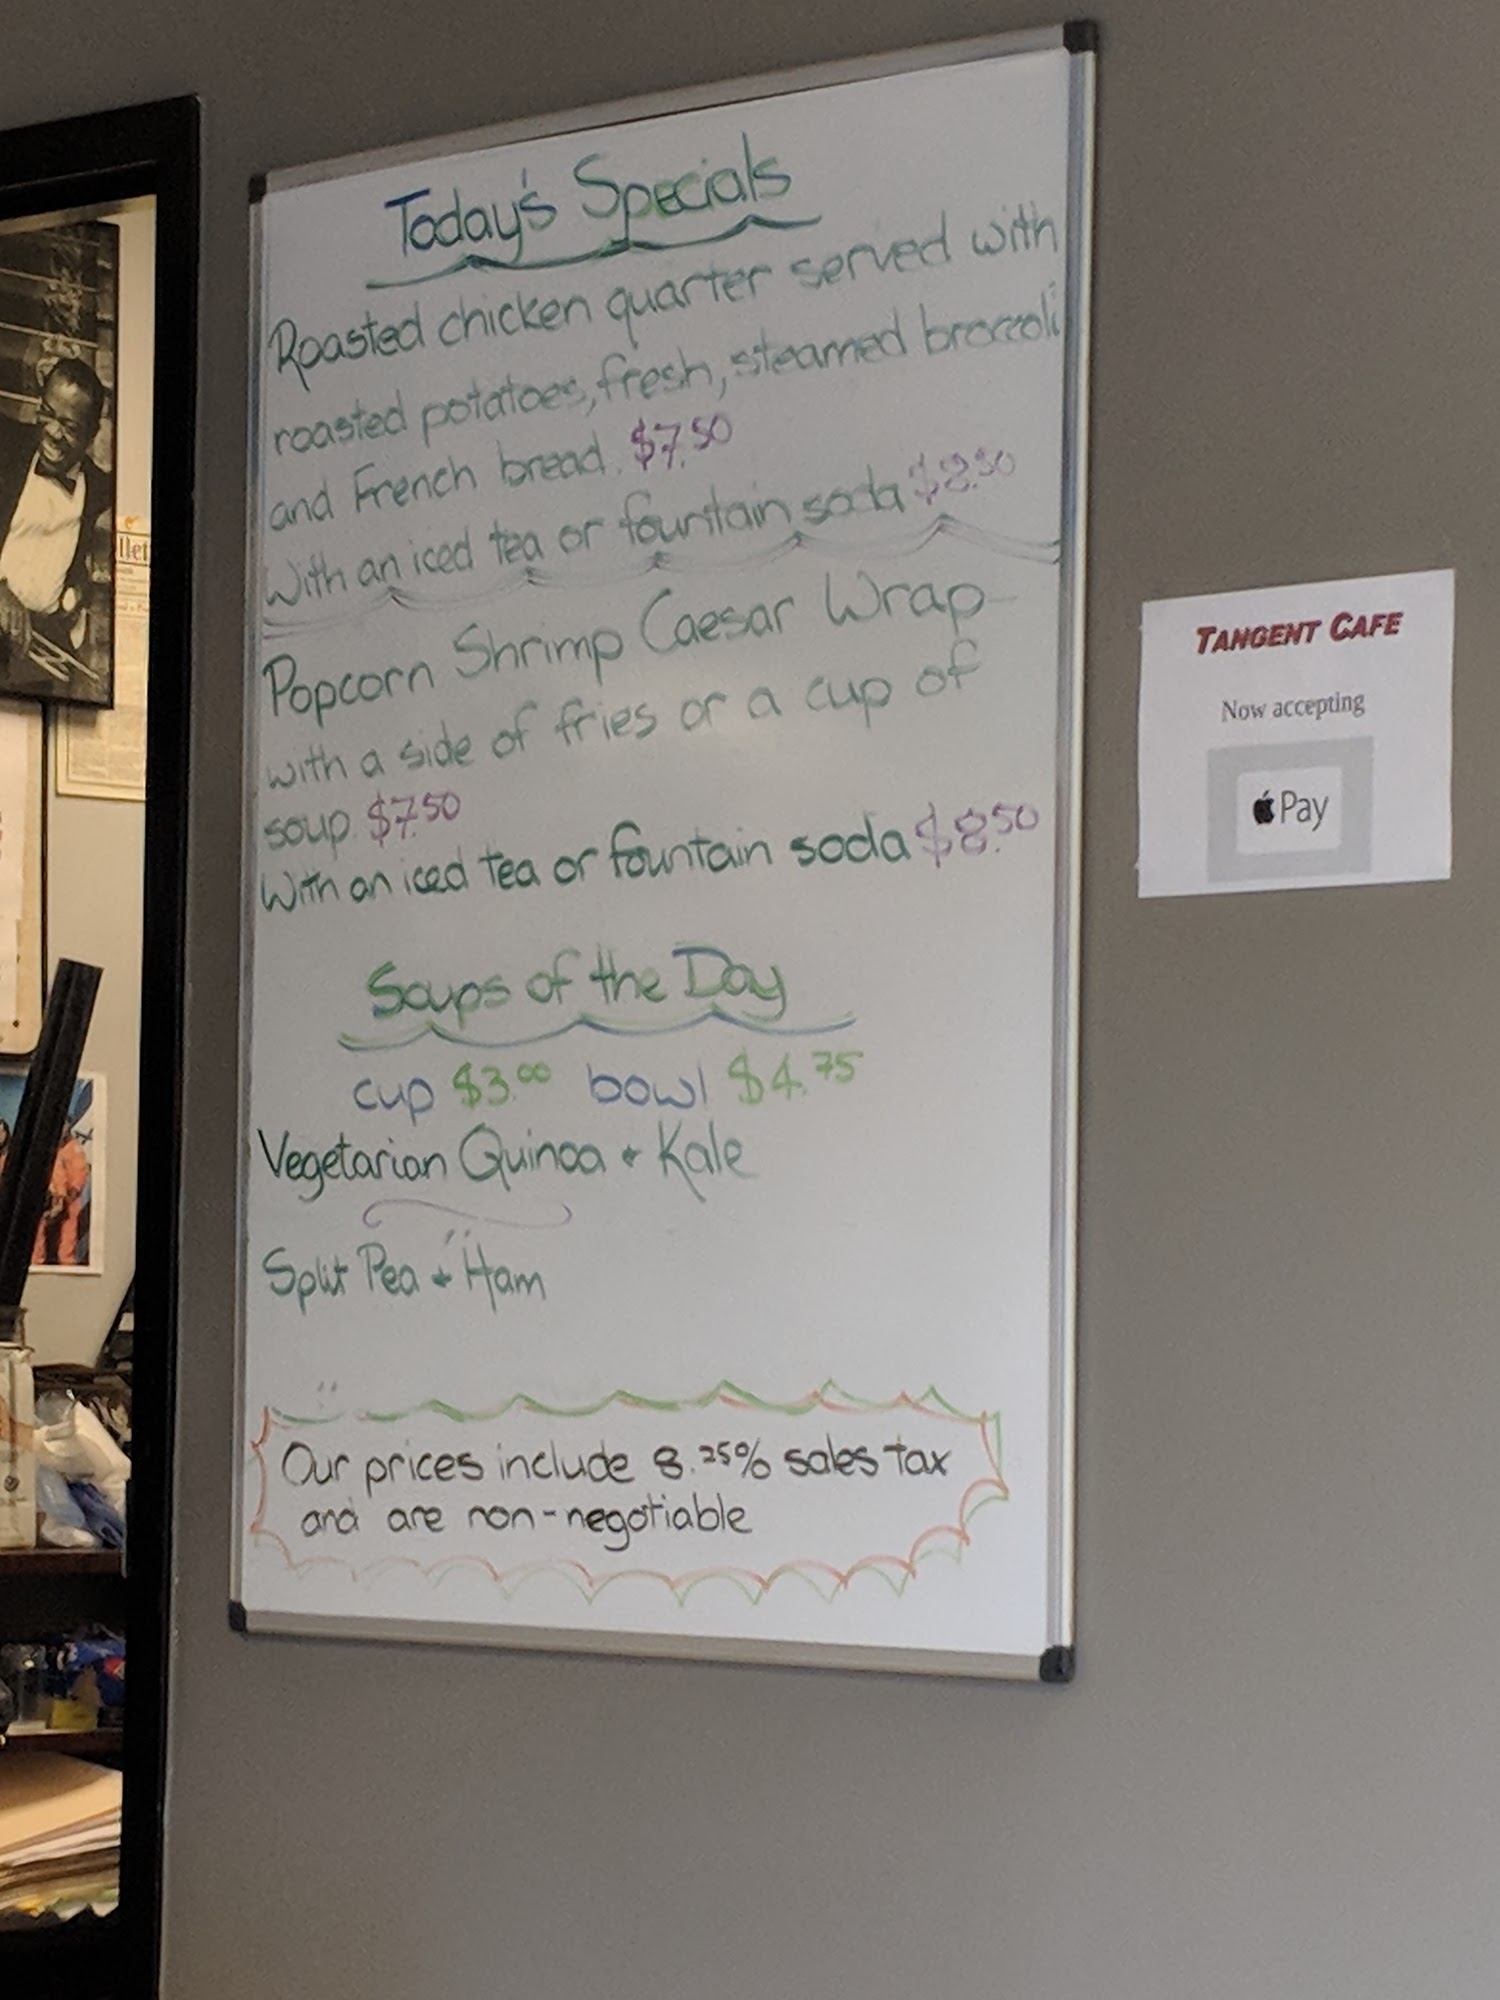 Today's Specials
Roasted chicken quarter served with
roasted potatoes, fresh, steamed broccoli
and French bread. $7.50
With an iced tea or fountain soda $8.50
Popcorn Shrimp Caesar Wrap-
with a side of fries or a cup of
soup. $7.50
With an iced tea or fountain soda $8.50
Soups of the Day
cup $3.00 bowl $4.75
Vegetarian Quinoa + Kale
Split Pea + Ham
Our prices include 8.25% sales tax
and are non-negotiable
TANGENT CAFE
Now accepting
Pay